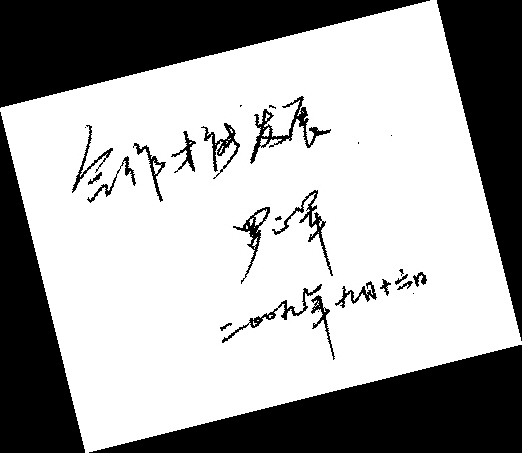 合作才能发展
罗正军
二〇〇九年九月十六日